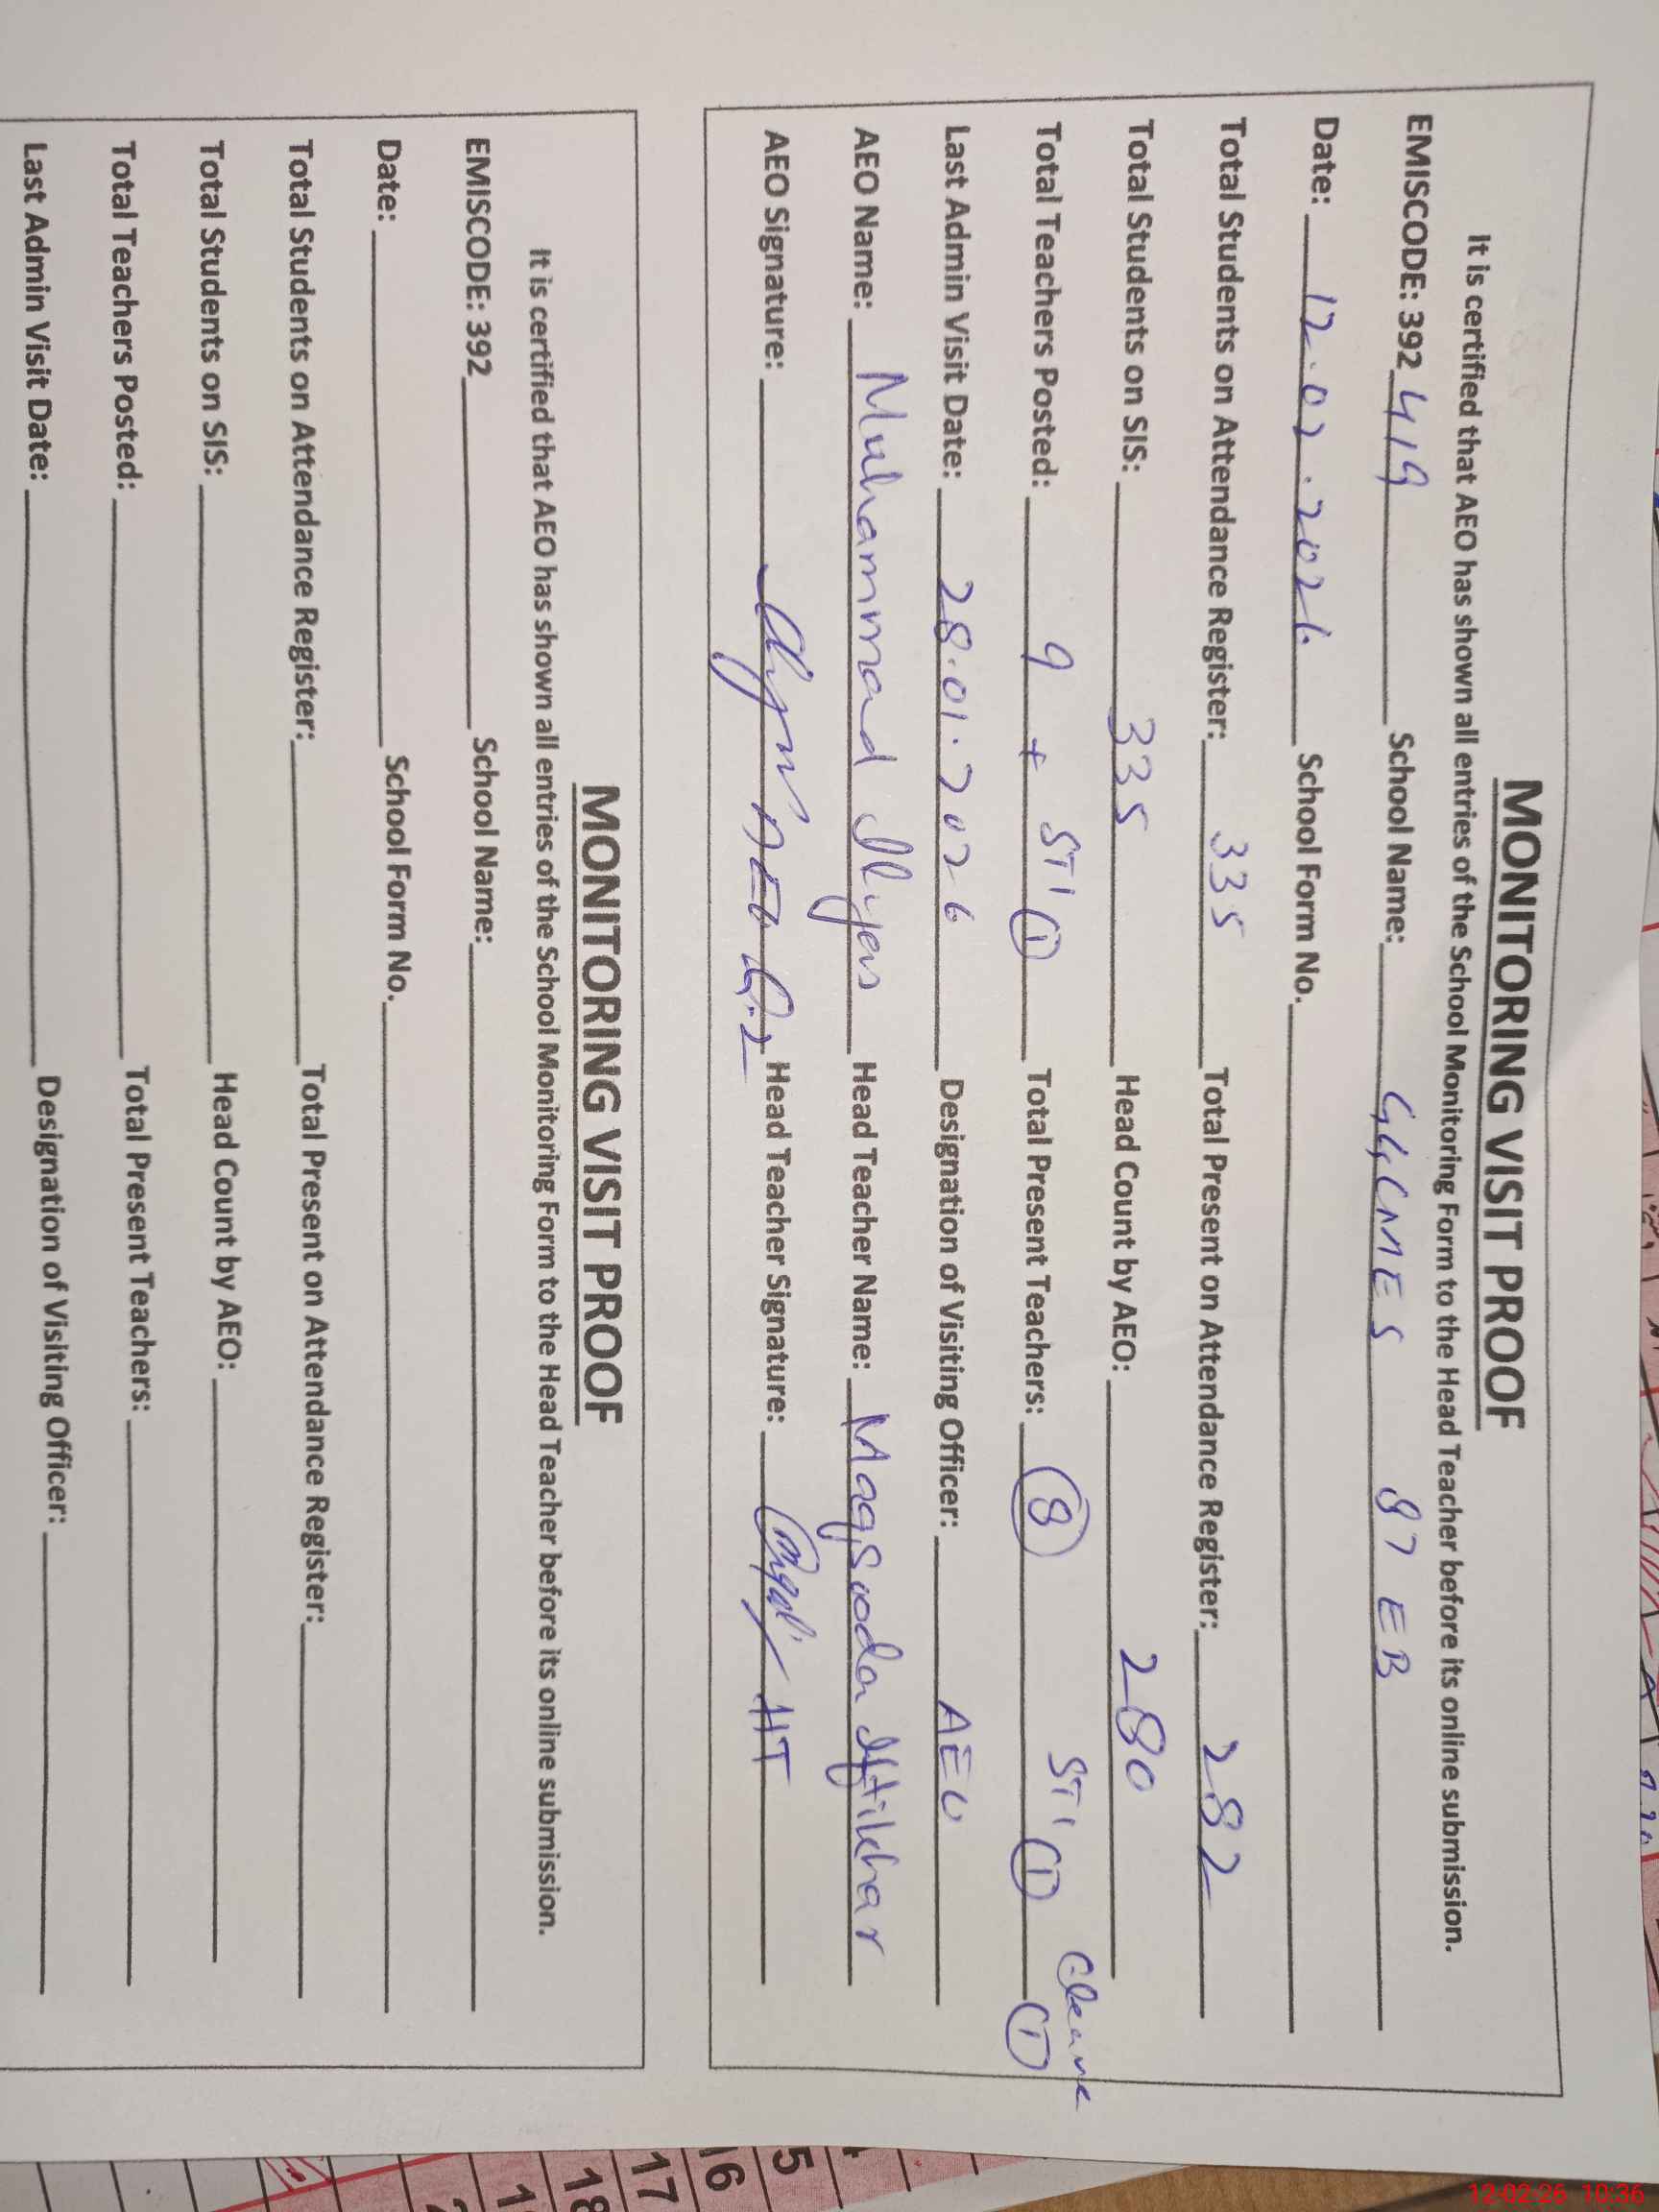 MONITORING VISIT PROOF
It is certified that AEO has shown all entries of the School Monitoring Form to the Head Teacher before its online submission.
EMISCODE: 392 419 School Name: GGCMES 87 EB
Date: 12.02.2026 School Form No.
Total Students on Attendance Register: 335 Total Present on Attendance Register: 282
Total Students on SIS: 335 Head Count by AEO: 280
Total Teachers Posted: 9 + STI (1) Total Present Teachers: (8) STI (1) (1)
Last Admin Visit Date: 28.01.2026 Designation of Visiting Officer: AEO
AEO Name: Muhammad Ilyas Head Teacher Name: Maqsooda Iftikhar
AEO Signature: AEO Head Teacher Signature: HT
MONITORING VISIT PROOF
It is certified that AEO has shown all entries of the School Monitoring Form to the Head Teacher before its online submission.
EMISCODE: 392 School Name:
Date: School Form No.
Total Students on Attendance Register: Total Present on Attendance Register:
Total Students on SIS: Head Count by AEO:
Total Teachers Posted: Total Present Teachers:
Last Admin Visit Date: Designation of Visiting Officer:
16
17
18
12-02-26 10:36